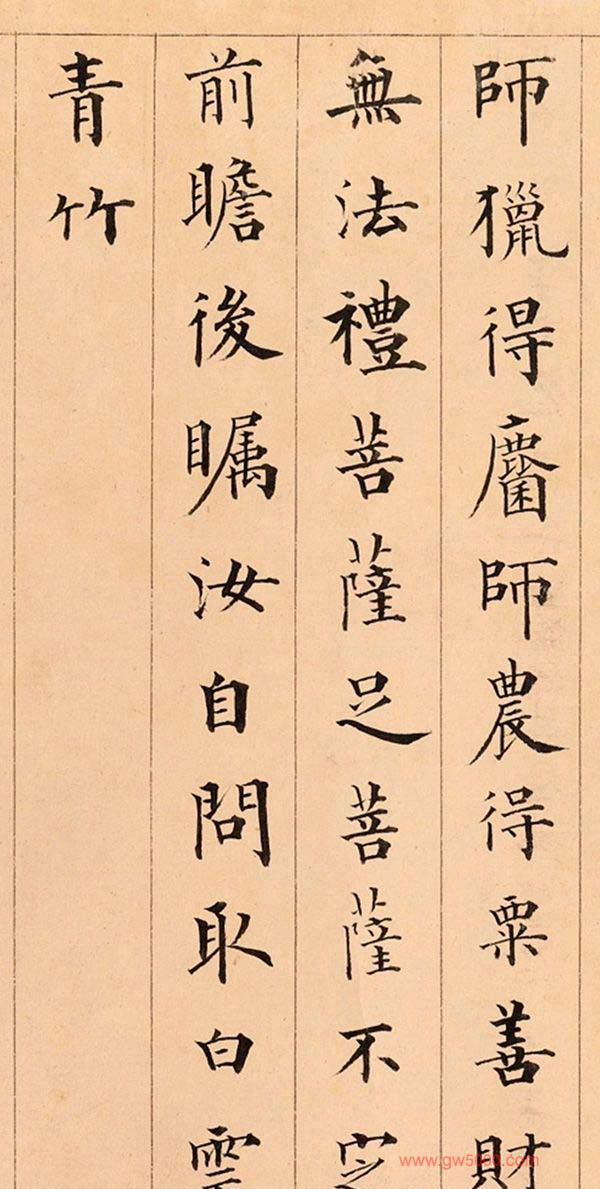 師獵得麕師農得粟善財
無法禮菩薩足菩薩不
前瞻後瞩汝自問取白雲
青竹